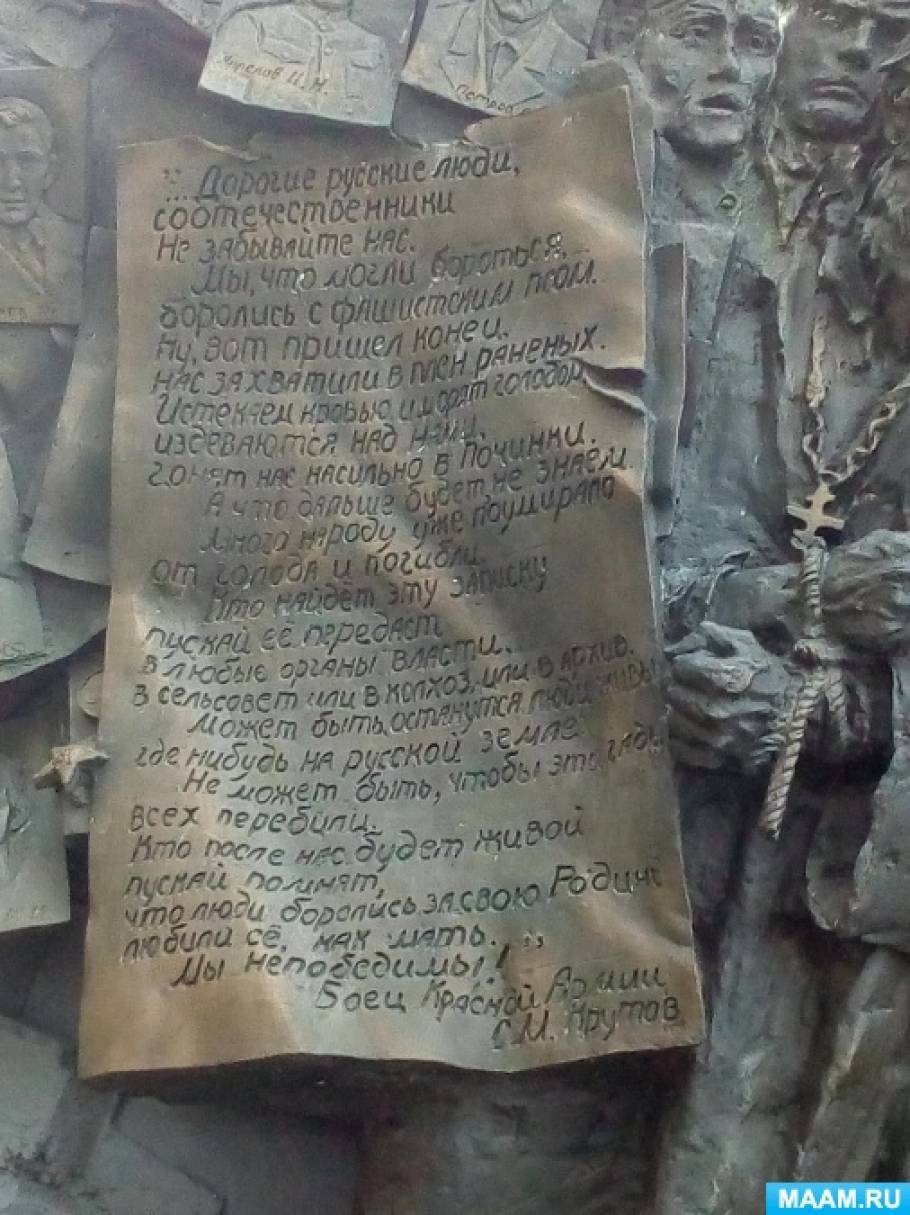 Апрелов И. Н.
"...Дорогие русские люди,
соотечественники
Не забывайте нас.
Мы, что могли бороться,
боролись с фашистским псом.
Ну, вот пришел конец.
Нас захватили в плен раненых.
Истекаем кровью и морят голодом,
издеваются над нами,
гонят нас насильно в Починки.
А что дальше будет, не знаем.
Много народу уже поумирало
от голода и погибли.
Кто найдёт эту записку
пускай её передаст
в любые органы власти.
в сельсовет или в колхоз, или в архив.
Может быть, останутся люди живы
где нибудь на русской земле.
Не может быть, чтобы эти гады
всех перебили.
Кто после нас будет живой
пускай помнят,
что люди боролись за свою Родину
любили её, как мать.
Мы непобедимы!"
Боец Красной Армии
С.М. Крутов
MAAM.RU